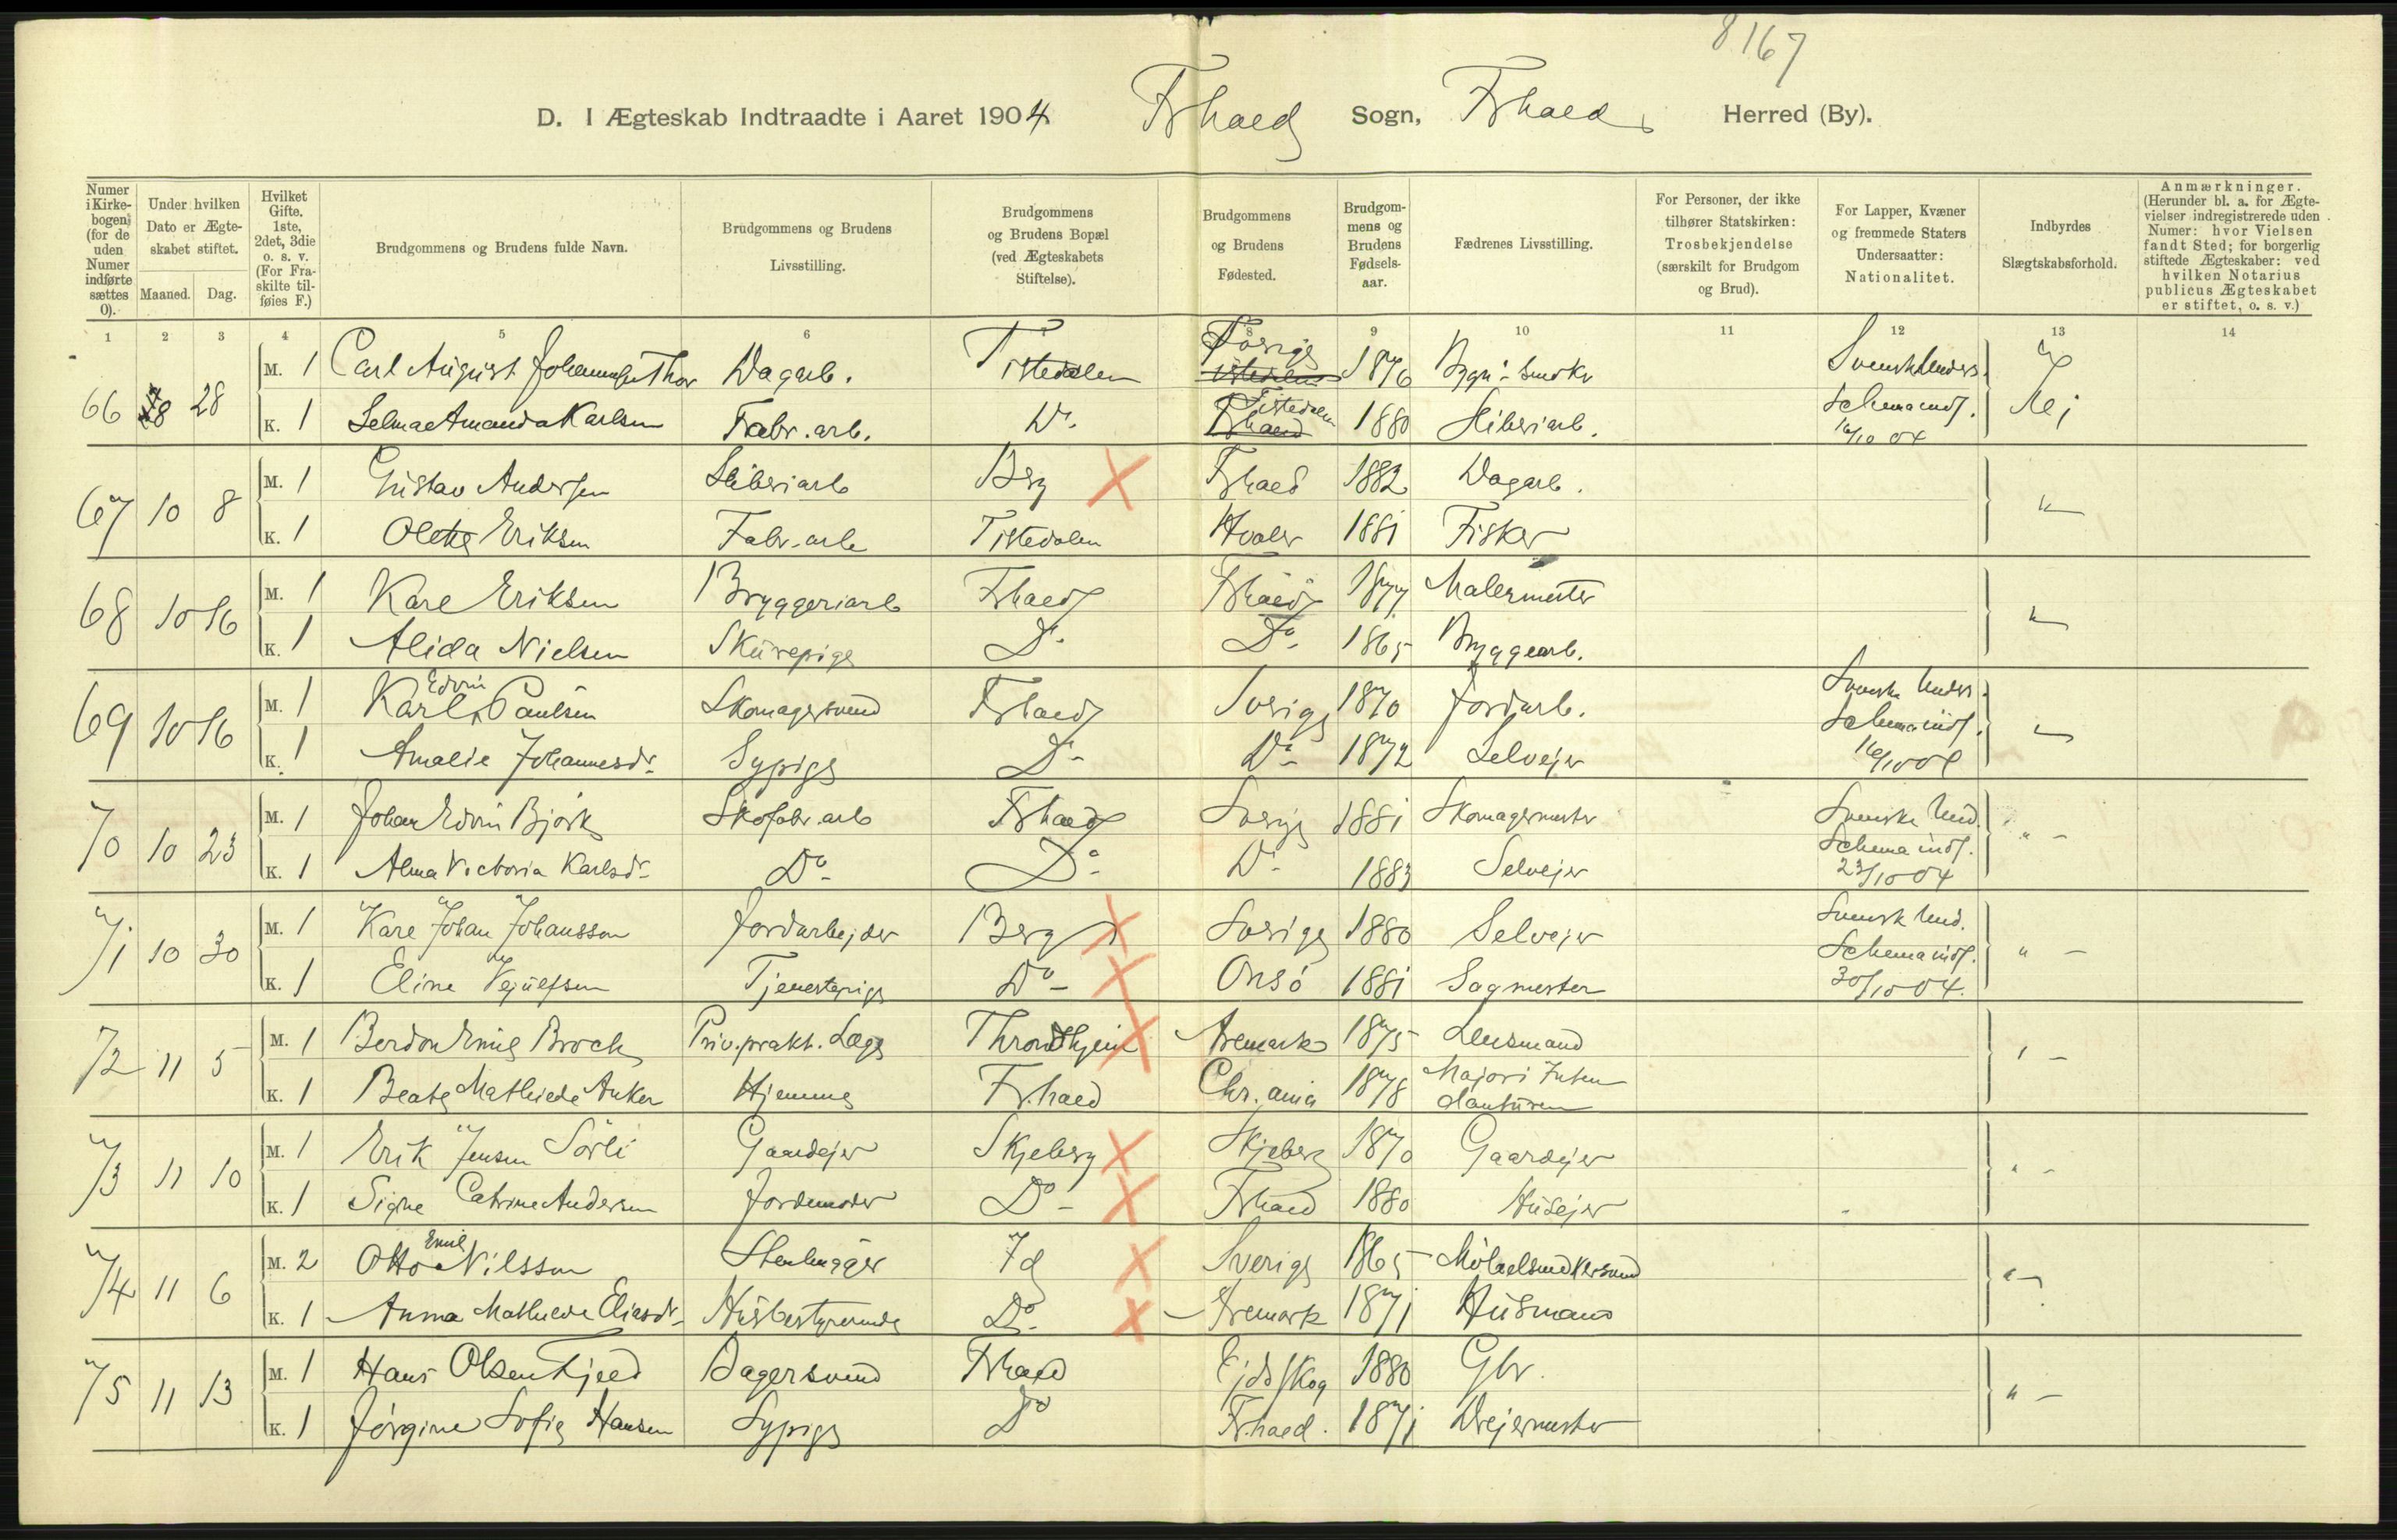 8167
D. I Ægteskab Indtraadte i Aaret 1904 Frhald Sogn, Frhald Herred (By).
Numer i Kirkebogen (for de uden Numer indførte sættes 0).
Under hvilken Dato er Ægteskabet stiftet.
Maaned. Dag.
Hvilket Gifte. 1ste, 2det, 3die o. s. v. (For Fraskilte tilføies F.)
Brudgommens og Brudens fulde Navn.
Brudgommens og Brudens Livsstilling.
Brudgommens og Brudens Bopæl (ved Ægteskabets Stiftelse).
Brudgommens og Brudens Fødested.
Brudgommens og Brudens Fødselsaar.
Fædrenes Livsstilling.
For Personer, der ikke tilhører Statskirken: Trosbekjendelse (særskilt for Brudgom og Brud).
For Lapper, Kvæner og fremmede Staters Undersaatter: Nationalitet.
Indbyrdes Slægtskabsforhold.
Anmærkninger. (Herunder bl. a. for Ægtevielser indregistrerede uden Numer: hvor Vielsen fandt Sted; for borgerlig stiftede Ægteskaber: ved hvilken Notarius publicus Ægteskabet er stiftet, o. s. v.)
1 2 3 4 5 6 7 8 9 10 11 12 13 14
66 8 28 M. 1 Carl August Thor Dagarb. Tistedalen Sverige 1876 Svensk Unders.
K. 1 Selma Amanda Karlsen Fabr. arb. Do. Tistedalen 1880 Sliberiarb. Schema inds. 16/10 04 Nei
67 10 8 M. 1 Gustav Andersen Sliberiarb Berg Frhald 1882 Dagarb. "
K. 1 Olette Eriksen Fabr. arb Tistedalen Hvaler 1881 Fisker
68 10 16 M. 1 Karl Eriksen Bryggeriarb Frhald Frhald 1877 Malermester "
K. 1 Alida Nielsen Skurepige Do. Do. 1865 Bryggearb.
69 10 16 M. 1 Karl Edvin Paulsen Skomagersvend Frhald Sverige 1870 Jordarb. Svenske Unders.
K. 1 Amalie Johannesdr. Sypige Do. Do. 1872 Selvejer Schema inds. 16/10 04
70 10 23 M. 1 Johan Edvin Bjørk Skofabr. arb Frhald Sverige 1881 Skomagermester Svenske Und. " -
K. 1 Alma Victoria Karlsdr. Do. Do. Do. 1883 Selvejer Schema inds. 23/10 04
71 10 30 M. 1 Karl Johan Johansson Jordarbejder Berg Sverige 1880 Selvejer Svensk Und. " -
K. 1 Eline Tjenestepige Do - Onsö 1881 Sagmester Schema inds. 30/10 04.
72 11 5 M. 1 Emil Broch Priv. prakt. Læge Throndhjem Aremark 1875 Lensmand " -
K. 1 Beate Mathilde Anker Hjemme Fr.hald Chr.ania 1878 Major i
73 11 10 M. 1 Erik Jensen Sörli Gaardejer Skjeberg Skjeberg 1870 Gaardejer " -
K. 1 Signe Catrine Andersen Jordemoder Do - Frhald 1880 Husejer
74 11 6 M. 2 Otto Emil Nilsson Stenhugger Id Sverige 1865 Möbelsnedkersvend " -
K. 1 Anna Mathilde Eliasdr. Husbestyrerinde Do. Aremark 1871 Husmand
75 11 13 M. 1 Hans Olsen Fjeld Bagersvend Frhald Ejdskog 1880 Gbr. " -
K. 1 Jörgine Sofie Hansen Sypige Do Fr.hald. 1871 Drejermester